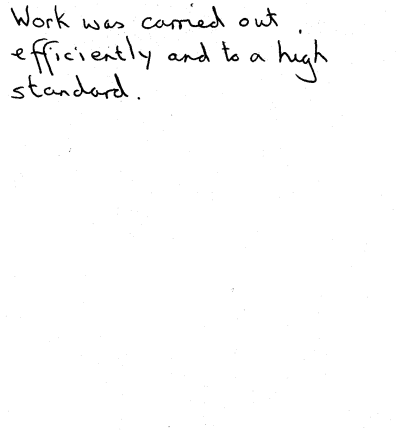 Work was carried out
efficiently and to a high
standard.